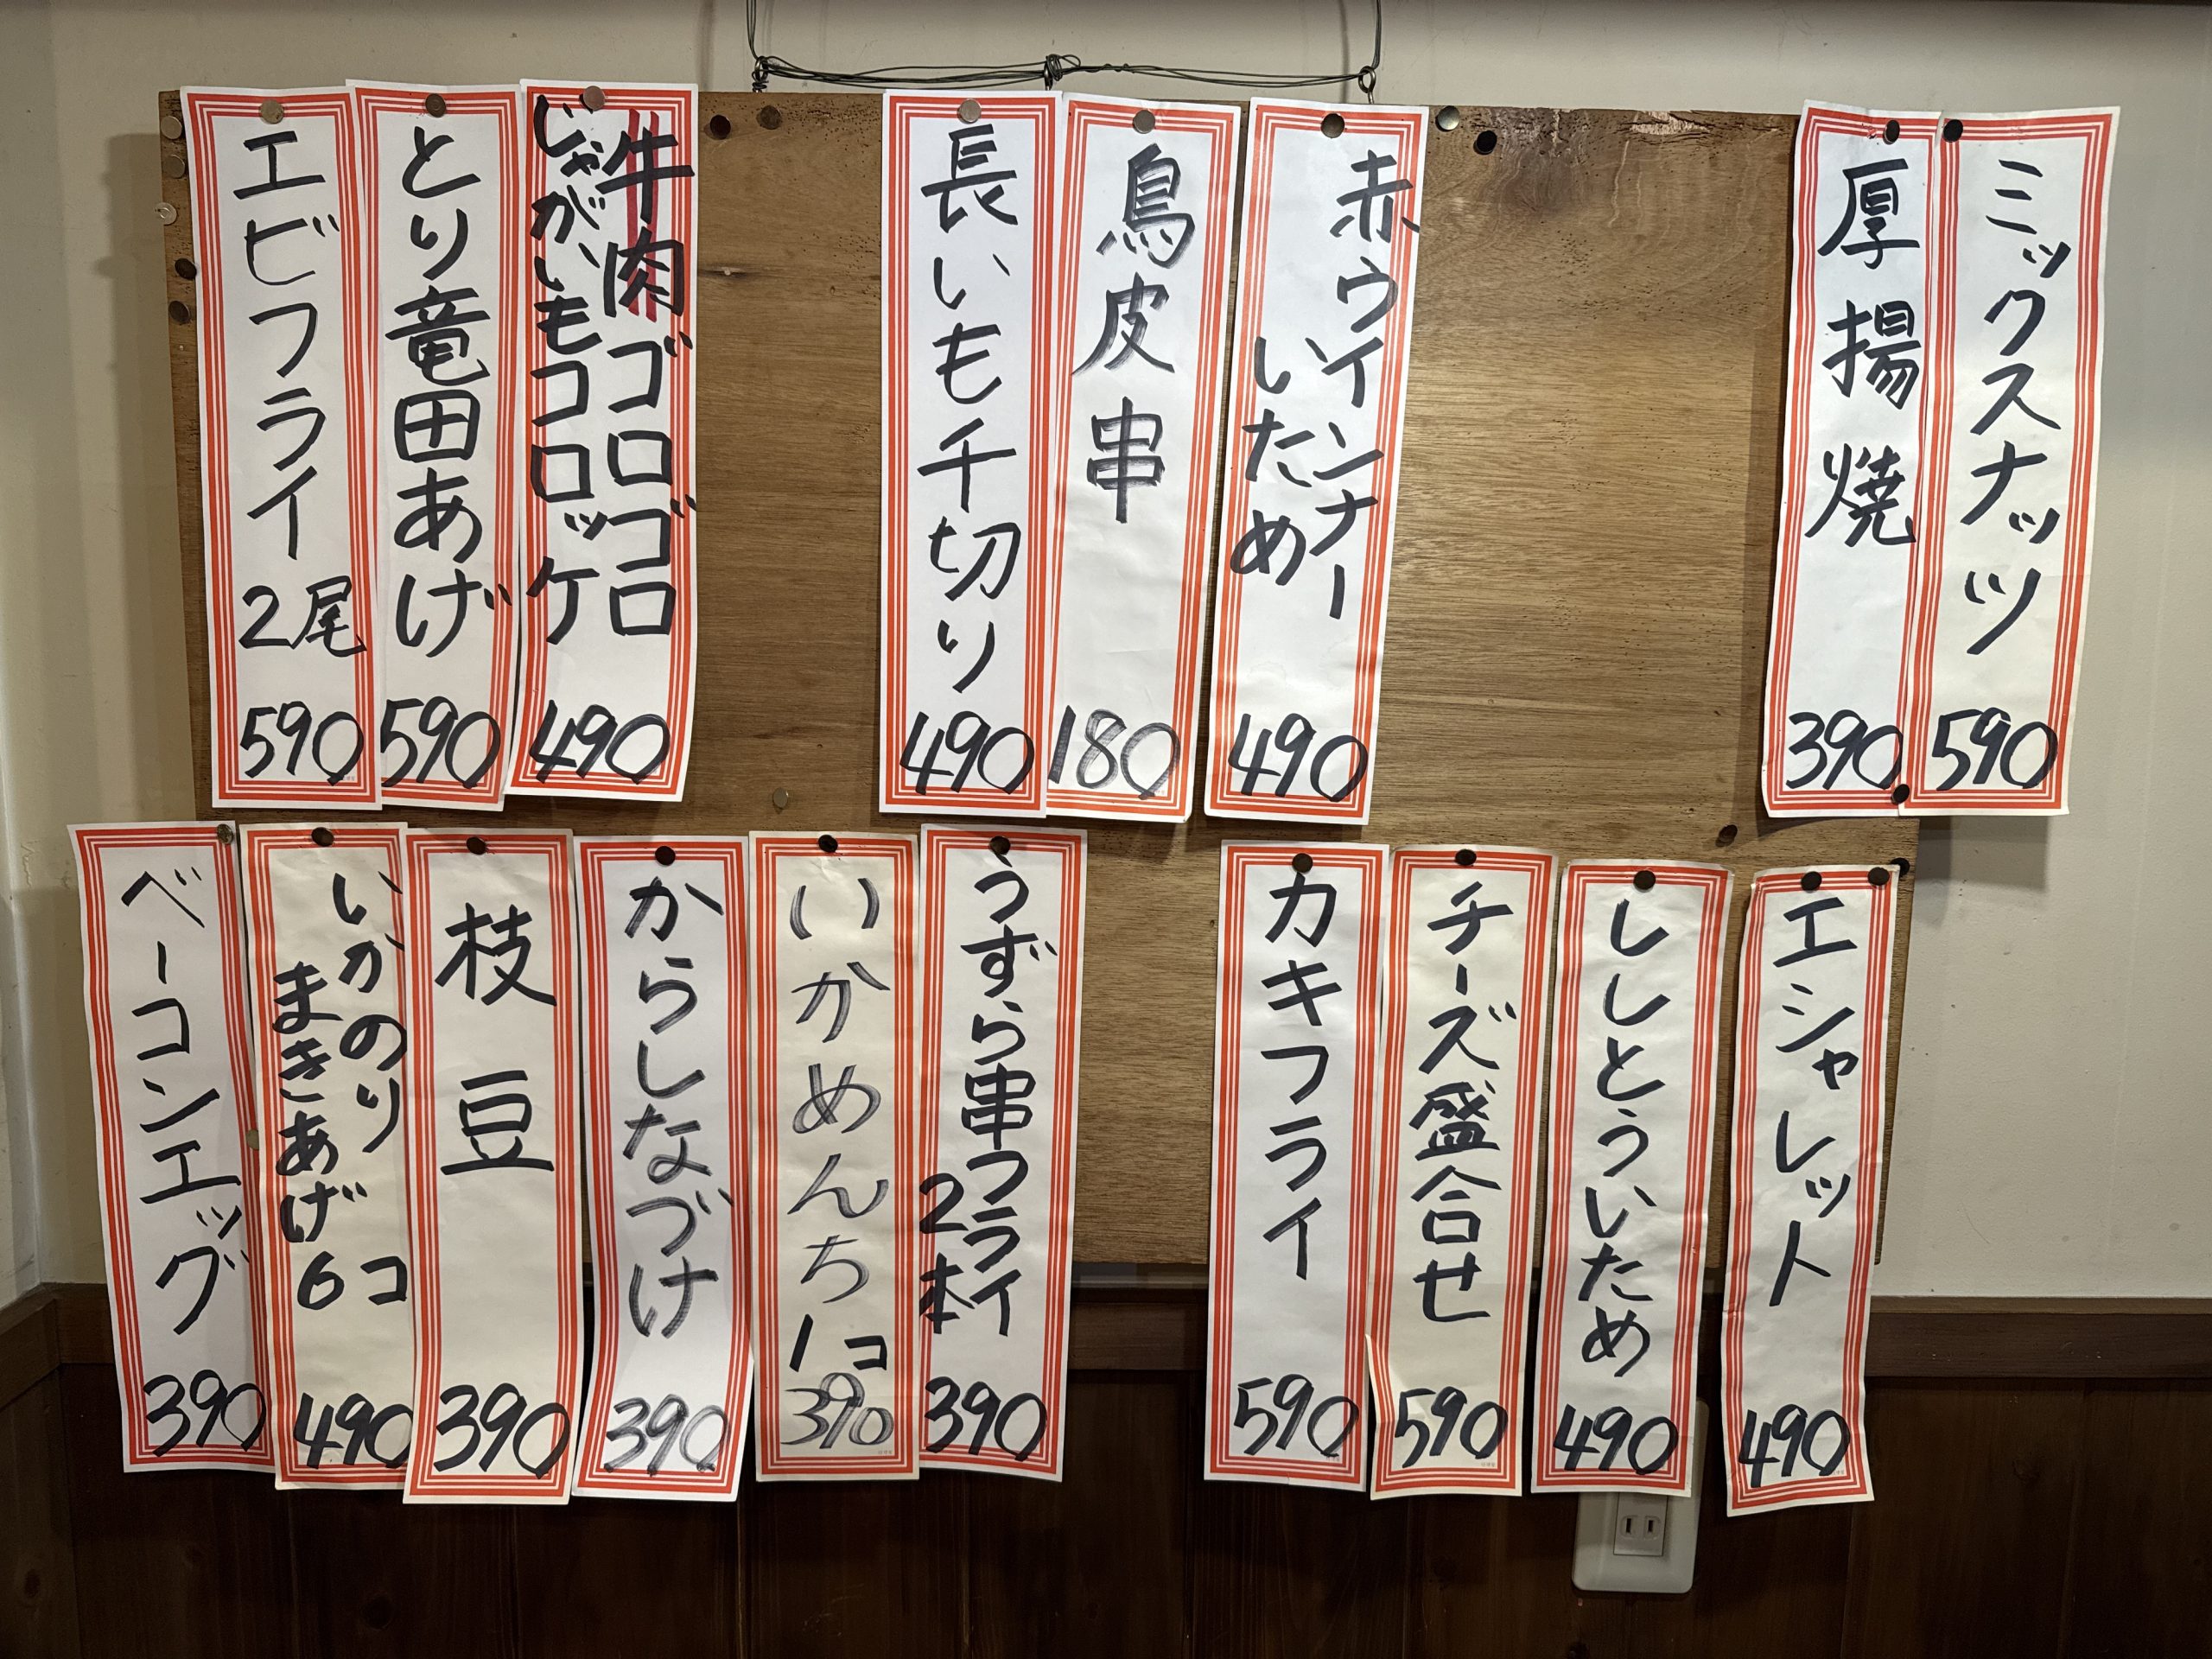 ミックスナッツ
590
厚揚焼
390
赤ウインナー
いため
490
鳥皮串
180
長いも千切り
490
牛肉ゴロゴロ
じゃがいもコロッケ
490
とり竜田あげ
590
エビフライ
2尾
590
エシャレット
490
ししとういため
490
チーズ盛合せ
590
カキフライ
590
うずら串フライ
2本
390
いかめんち
1コ
390
からしなづけ
390
枝豆
390
いかのり
まきあげ
6コ
490
ベーコンエッグ
390